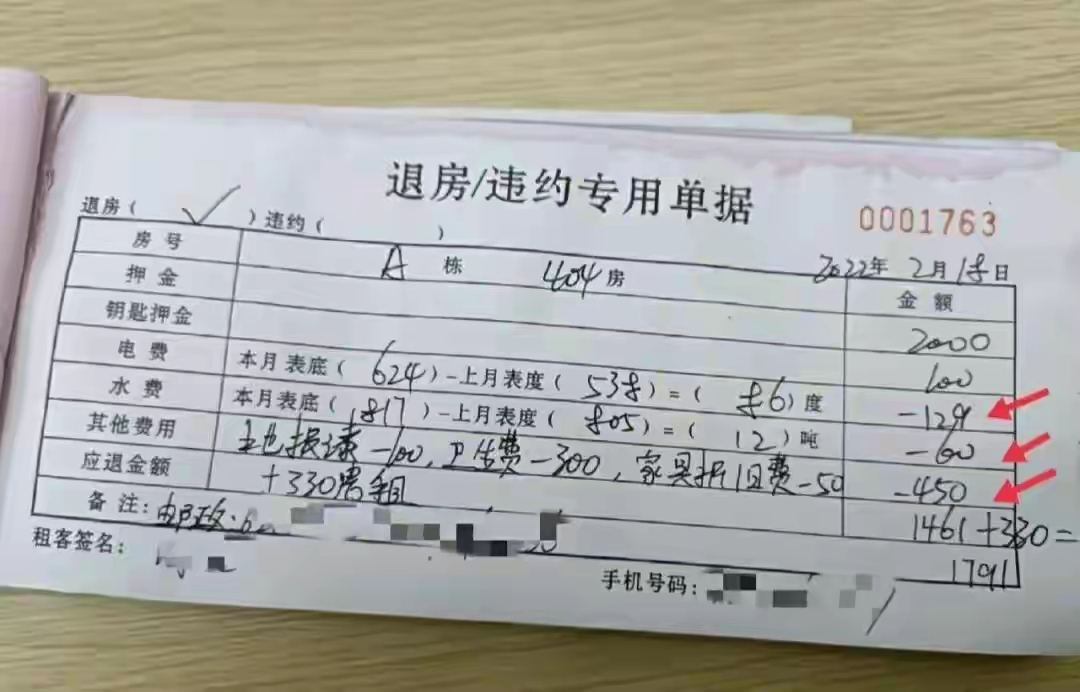 退房/违约专用单据
0001763
退房(✓)违约( )
2022年2月18日
房号 A栋 404房 金额
押金 2000
钥匙押金 100
电费 本月表底(624)-上月表度(538)=(86)度 -129
水费 本月表底(817)-上月表度(805)=(12)吨 -60
其他费用 -100,卫生费-300,家具折旧费-50 -450
应退金额 +330房租 1461+330=
1791
备注:邮政:
租客签名:
手机号码: